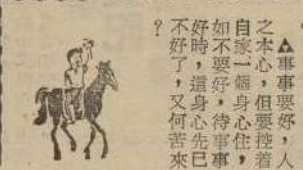 ▲事事要好，人
之本心，但要控着
自家一個身心住，
如不要好，待事事
好時，這身心先已
不好了，又何苦來
？